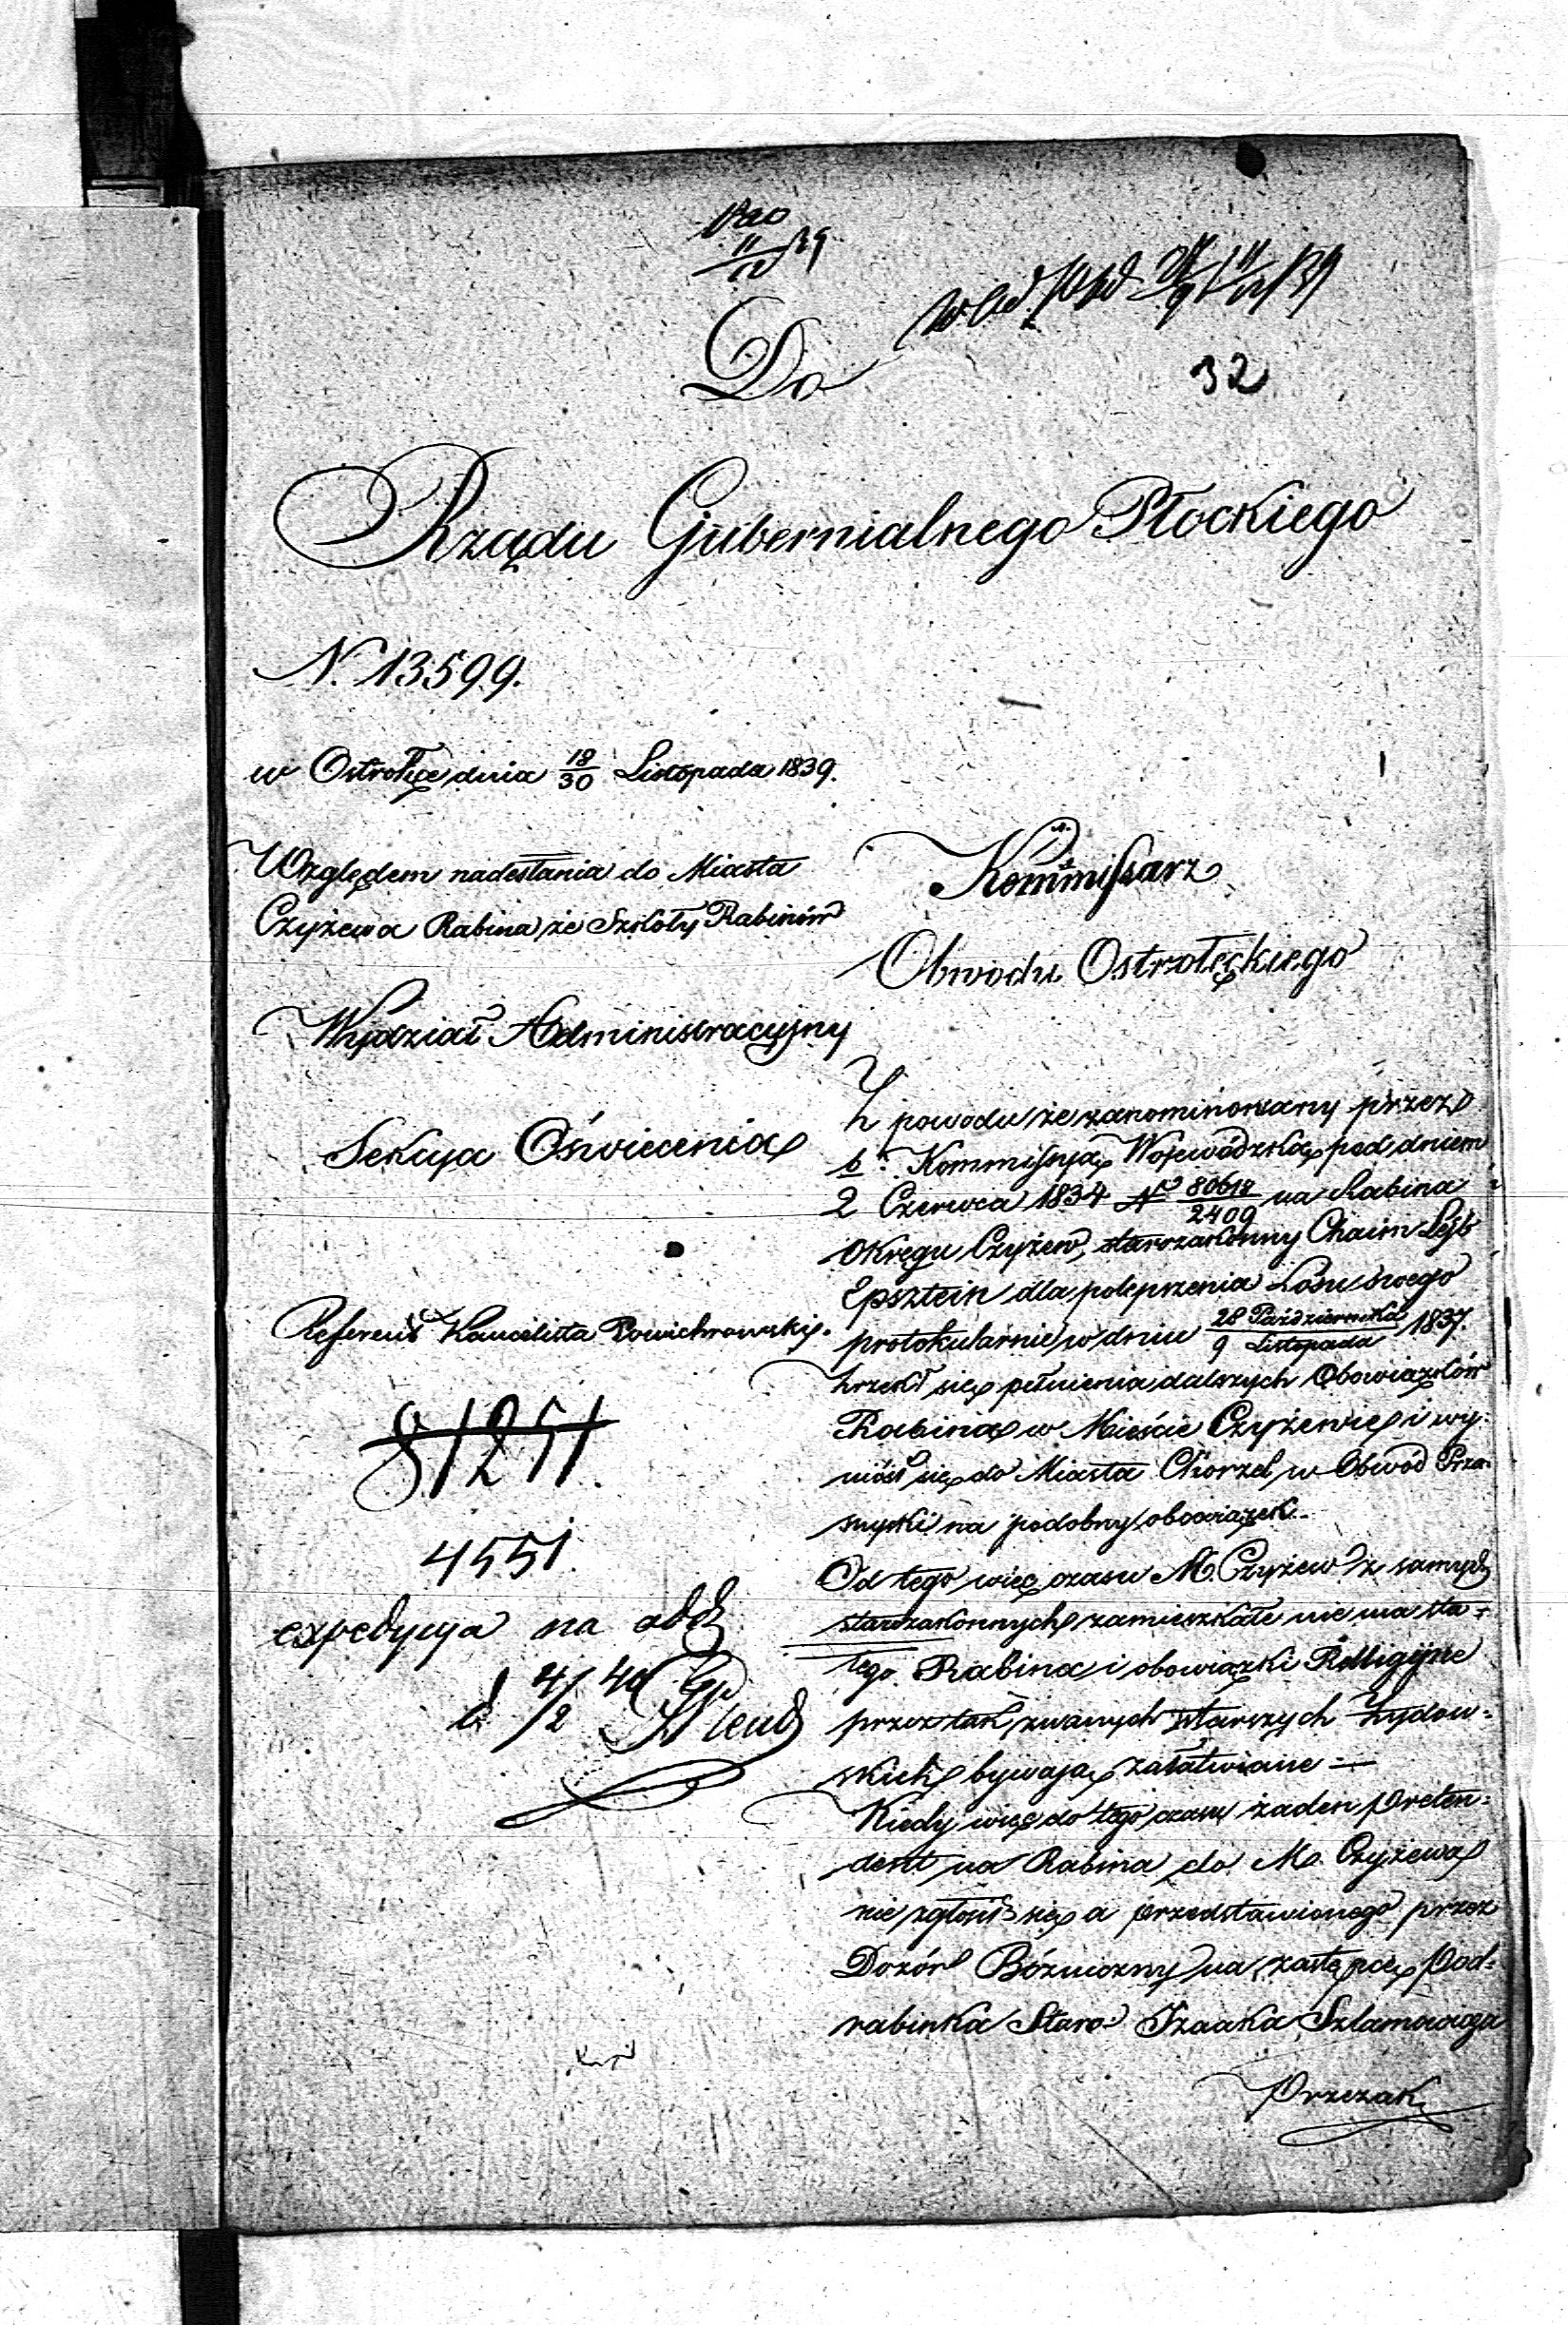 11/12 39
32
Do
Rządu Gubernialnego Płockiego
N. 13599.
w Ostrołęce dnia 18/30 Listopada 1839.
Względem nadesłania do Miasta
Czyżewa Rabina ze Szkoły Rabinów
Wydział Administracyjny
Sekcya Oświecenia
Referent Kancelista
81251
4551
expedycya na
d 4/2 40
Kommissarz
Obwodu Ostrołęckiego
Z powodu że zanominowany przez
b. Kommissyją Wojewódzką pod dniem
2 Czerwca 1834 No 80618/2409 na Rabina
Okręgu Czyżew, starozakonny Chaim Lejb
Epsztein dla polepszenia Losu swego
protokularnie w dniu 28 Października/9 Listopada 1837.
zrzekł się pełnienia dalszych Obowiązków
Rabina w Mieście Czyżewie i wy-
niósł się do Miasta Chorzel w Obwód Prza-
snyski na podobny obowiązek.-
Od tego więc czasu M. Czyżew z samych
starozakonnych zamieszkałe nie ma sta-
łego Rabina i obowiązki Relligijne
przez tak zwanych starszych Żydow-
skich bywają załatwiane —
Kiedy więc do tego czasu żaden preten-
dent na Rabina do M. Czyżewa
nie zgłosił się a przedstawionego przez
Dozór Bóżniczny na zastępcę Pod-
rabinka Staro: Izaaka Szlamowicza
Przezak